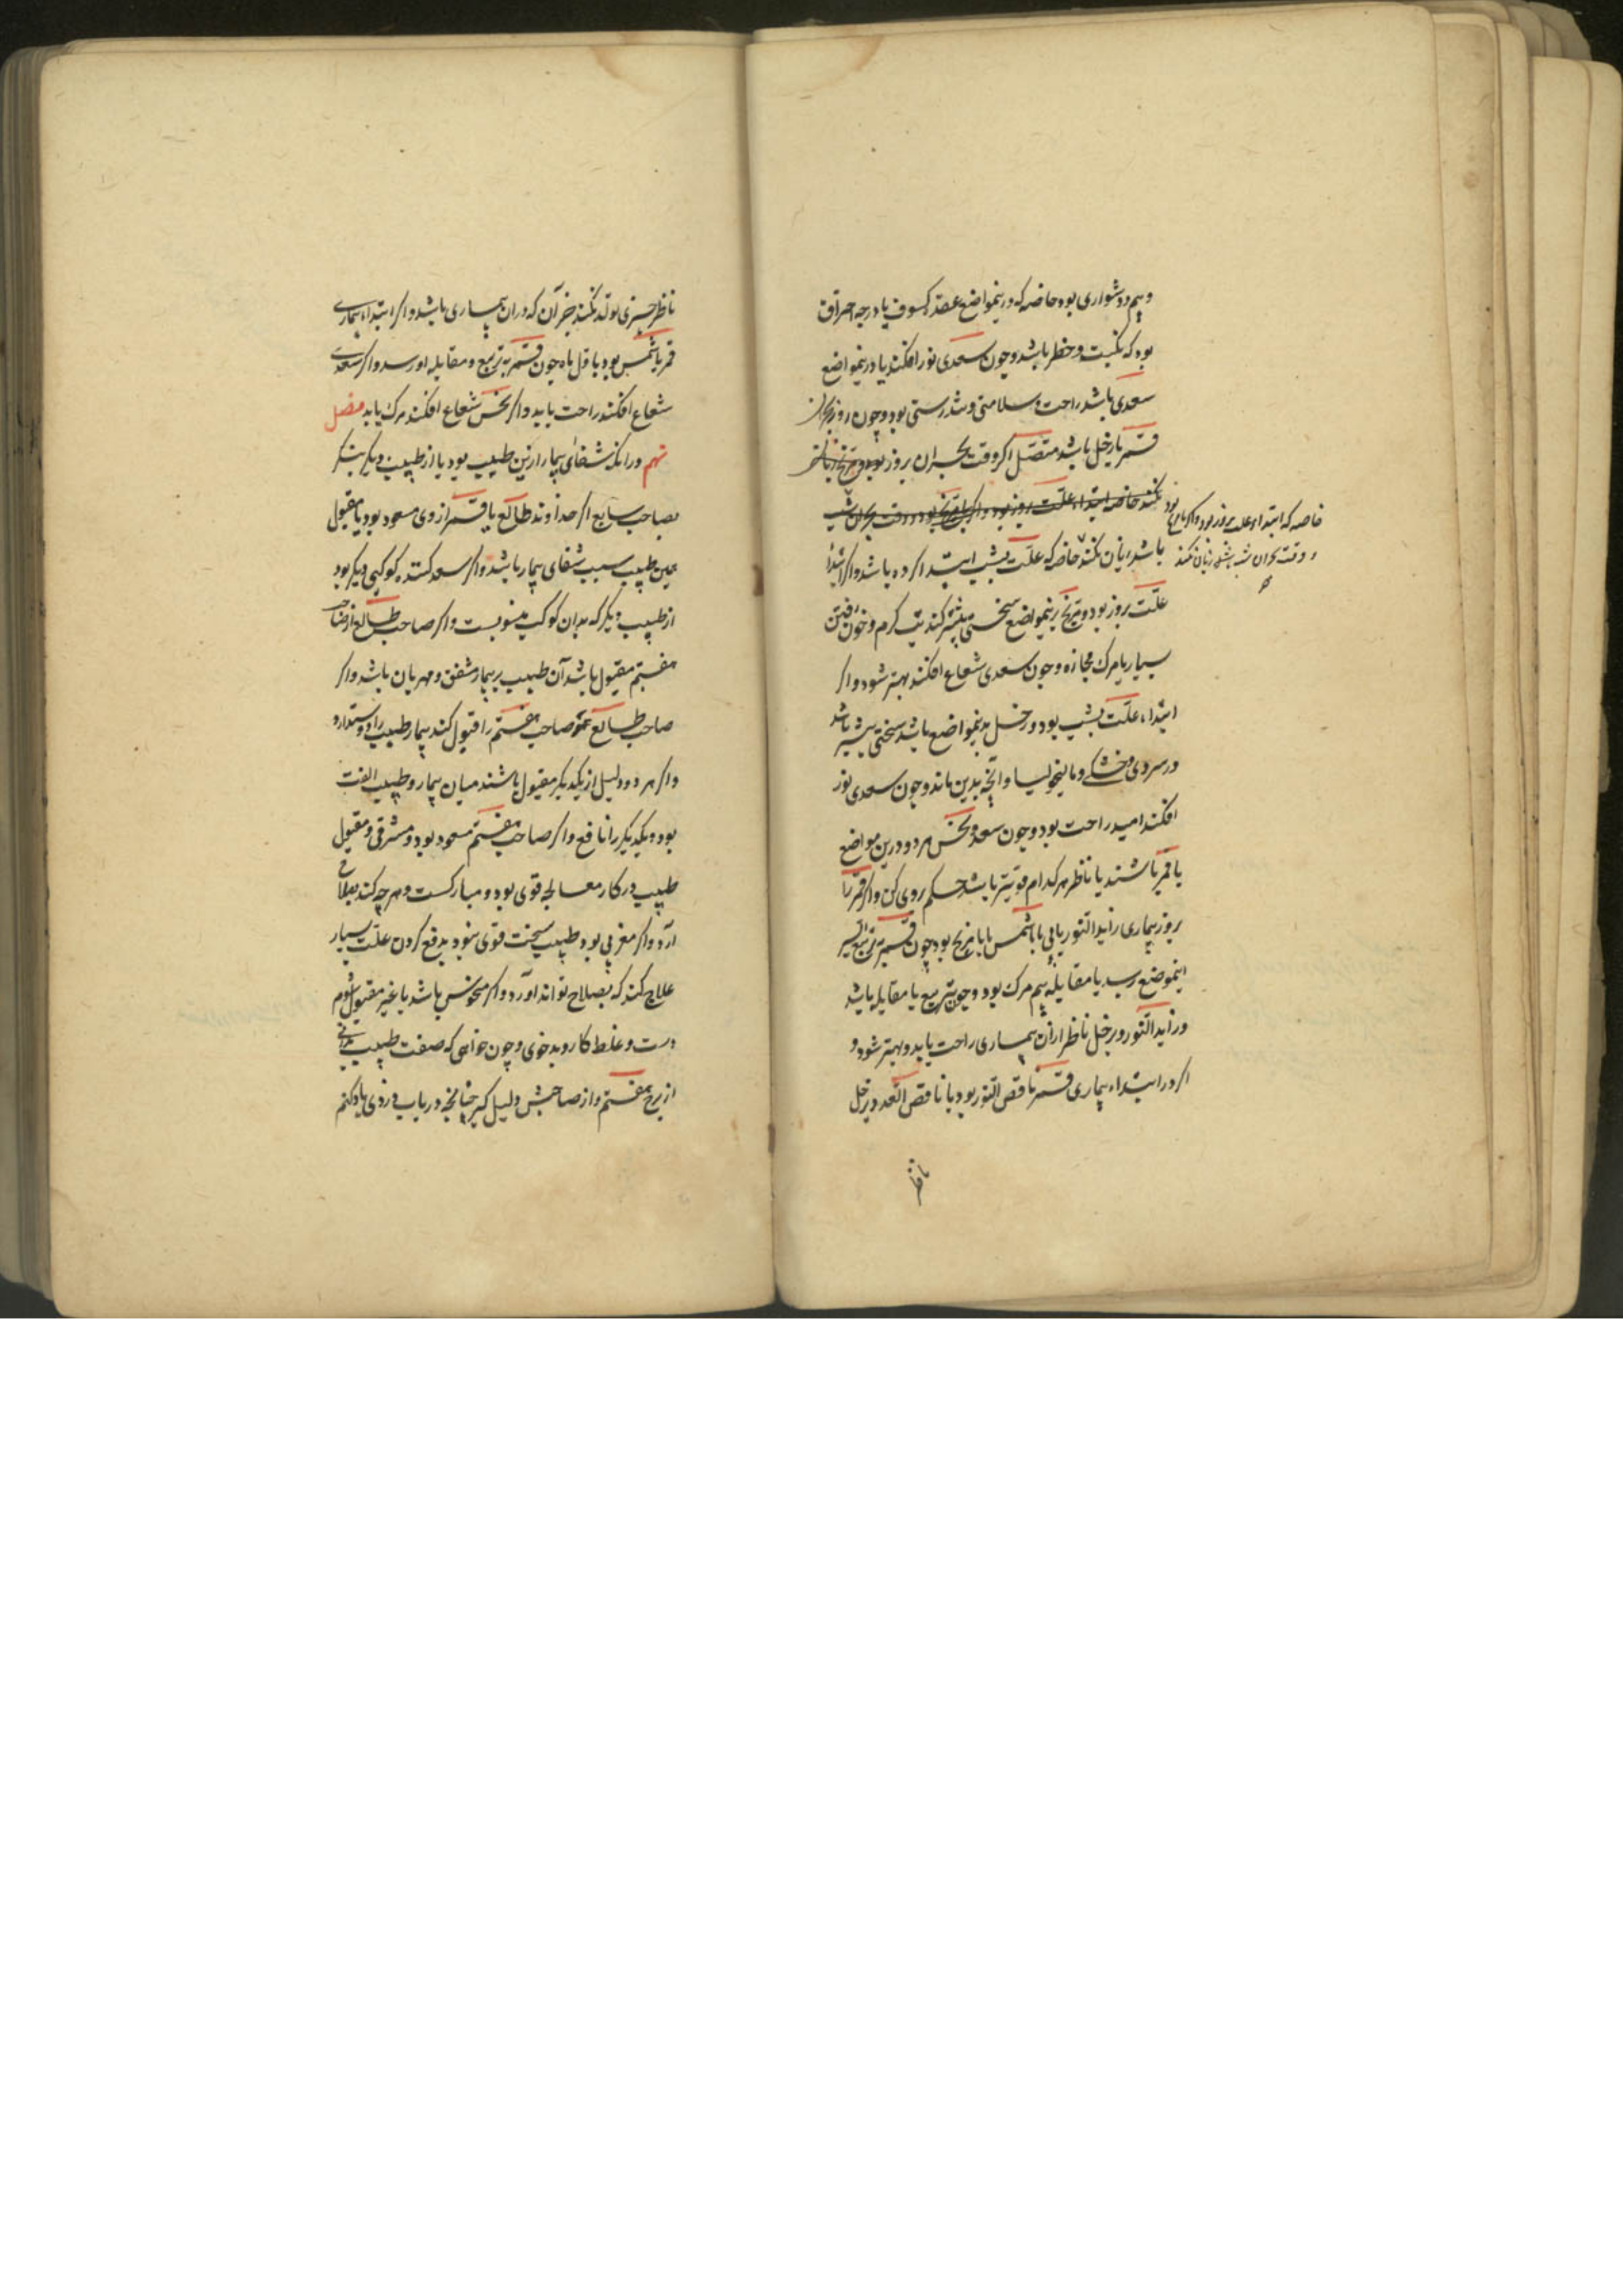 وبیم و دشواری بود خاصه که درین مواضع عقده کسوف یا درجه احراق
بود که نکبت و خطر باشد و چون سعدی نور افکند یا درین مواضع
سعدی باشد راحت و سلامتی و تندرستی بود و چون روز بحران
قمر با زحل باشد متصل اکر وقت بحران بروز بود و مریخ زیان
نکند خاصه ابتداء علت روز بود و اکر با مریخ بود و وقت بحران شب
خاصه که ابتداء علت بروز بود و اکر با مریخ بود
و وقت بحران شب باشد زیان نکند
باشد زیان نکند خاصه که علت بشب ابتدا کرده باشد و اکر ابتدا
علت بروز بود و مریخ بدینمواضع سختی بیشتر کند تب کرم و خون رفتن
بسیار یا مرک مجازه و چون سعدی شعاع افکند بهتر شود و اکر
ابتداء علت بشب بود و زحل بدینمواضع باشد سختی بیشتر باشد
در سردی و خشکی و مالیخولیا و آنچه بدین ماند و چون سعدی نور
افکند امید راحت بود و چون سعد و نحس هر دو درین مواضع
با قمر باشند یا ناظر هر کدام قویتر باشد حکم بروی کن و اکر قمر را
بروز بیماری زاید النور یابی با شمس یا با مریخ بود چون قمر بتربیع ایسر
اینموضع رسد یا مقابله بیم مرک بود و چون بتربیع یا مقابله باشد
و زاید النور و زحل ناظر ازآن بیماری راحت یابد و بهتر شود و
اکر در ابتداء بیماری قمر ناقص النور بود یا ناقص العدد و زحل
ناظر
ناظر چیزی تولد نکند جز آن که در ان بیماری باشد و اکر ابتداء بیماری
قمر با شمس بود باول ماه چون قمر بتربیع و مقابله او رسد و اکر سعدی
شعاع افکند راحت یابد و اکر نحس شعاع افکند مرک یابد فصل
نهم در انکه شفای بیمار ازین طبیب بود یا از طبیب دیکر بنکر
بصاحب سابع اکر خداوند طالع یا قمر از وی مسعود بود یا مقبول
همین طبیب سبب شفای بیمار باشد و اکر سعد کننده کوکبی دیکر بود
از طبیب دیکر که بدان کوکب منسوبست و اکر صاحب طالع از صاحب
هفتم مقبول باشد آن طبیب بر بیمار مشفق و مهربان باشد و اکر
صاحب طالع صاحب هفتم را قبول کند بیمار طبیب را دوستدارد
و اکر هر دو دلیل از یکدیکر مقبول باشند میان بیمار و طبیب الفت
بود و یکدیکر را نافع و اکر صاحب هفتم مسعود بود و مشرقی و مقبول
طبیب در کار معالجه قوی بود و مبارکست و هر چه کند بصلاح
آرد و اکر مغربی بود طبیب سخت قوی نبود بدفع کردن علت بسیار
علاج کند که بصلاح تواند آورد و اکر منحوس باشد یا غیر مقبول شوم
دست و غلط کار و بدخوی و چون خواهی که صفت طبیب بدانی
از برج هفتم و از صاحبش دلیل کیر چنانچه در باب دزدی یاد کنم